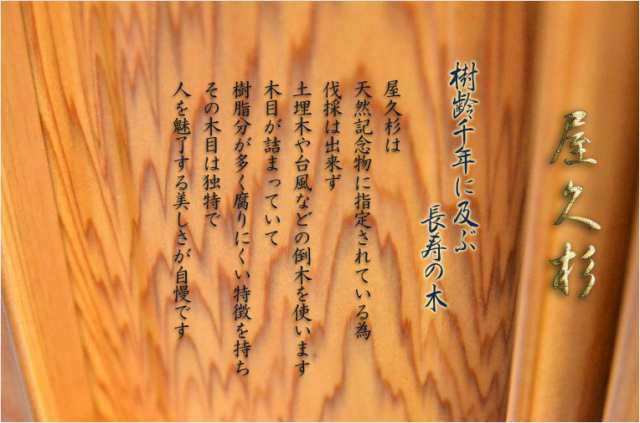 屋久杉
樹齢千年に及ぶ
長寿の木
屋久杉は
天然記念物に指定されている為
伐採は出来ず
土埋木や台風などの倒木を使います
木目が詰まっていて
樹脂分が多く腐りにくい特徴を持ち
その木目は独特で
人を魅了する美しさが自慢です